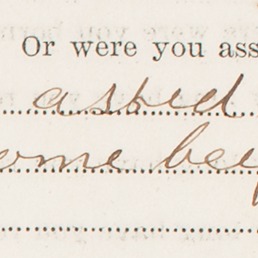 Or were you ass
asked
ome bef